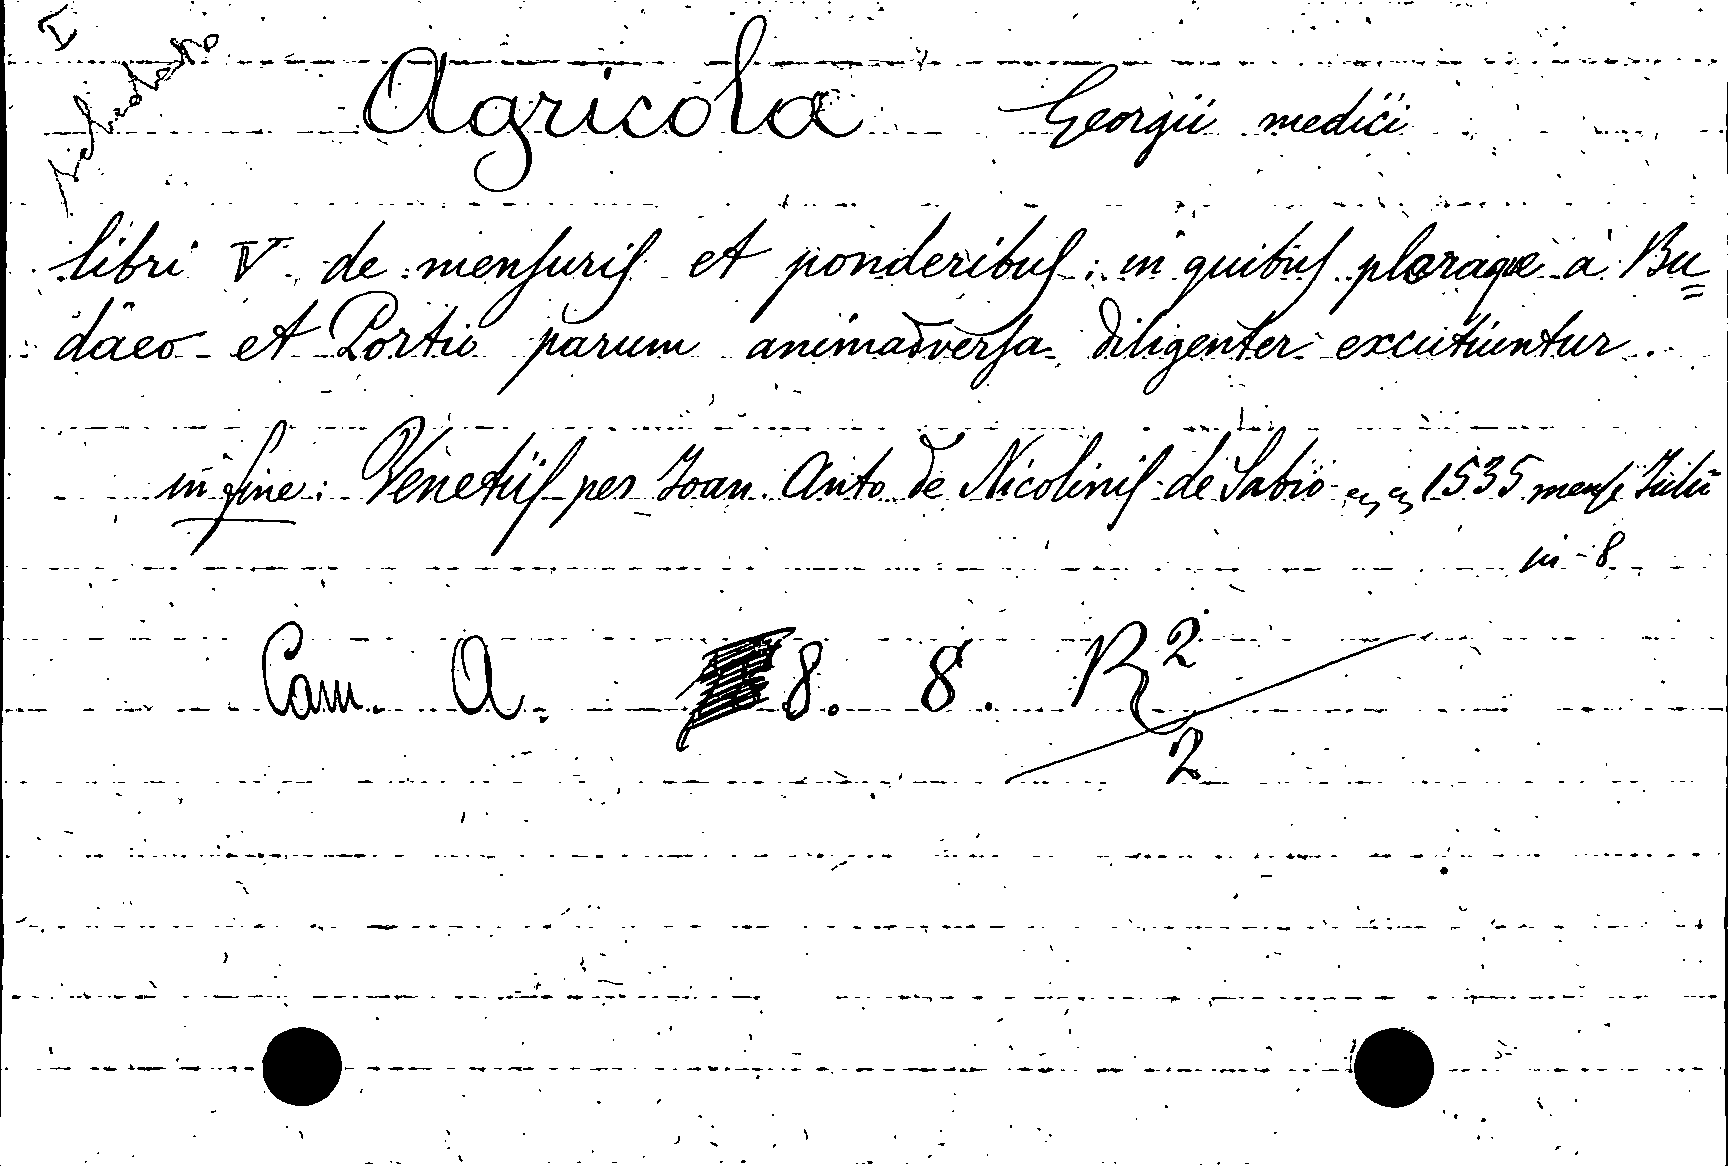 I
schedato
Agricola Georgii medici
libri V de mensuris et ponderibus: in quibus pleraque à Bu=
daeo et Portio parum animadversa diligenter excutiuntur.
in fine: Venetiis per Joan. Anto de Nicolinis de Sabio 1535 mense Julii
in-8
Cam. A. 8. 8. R 2
2